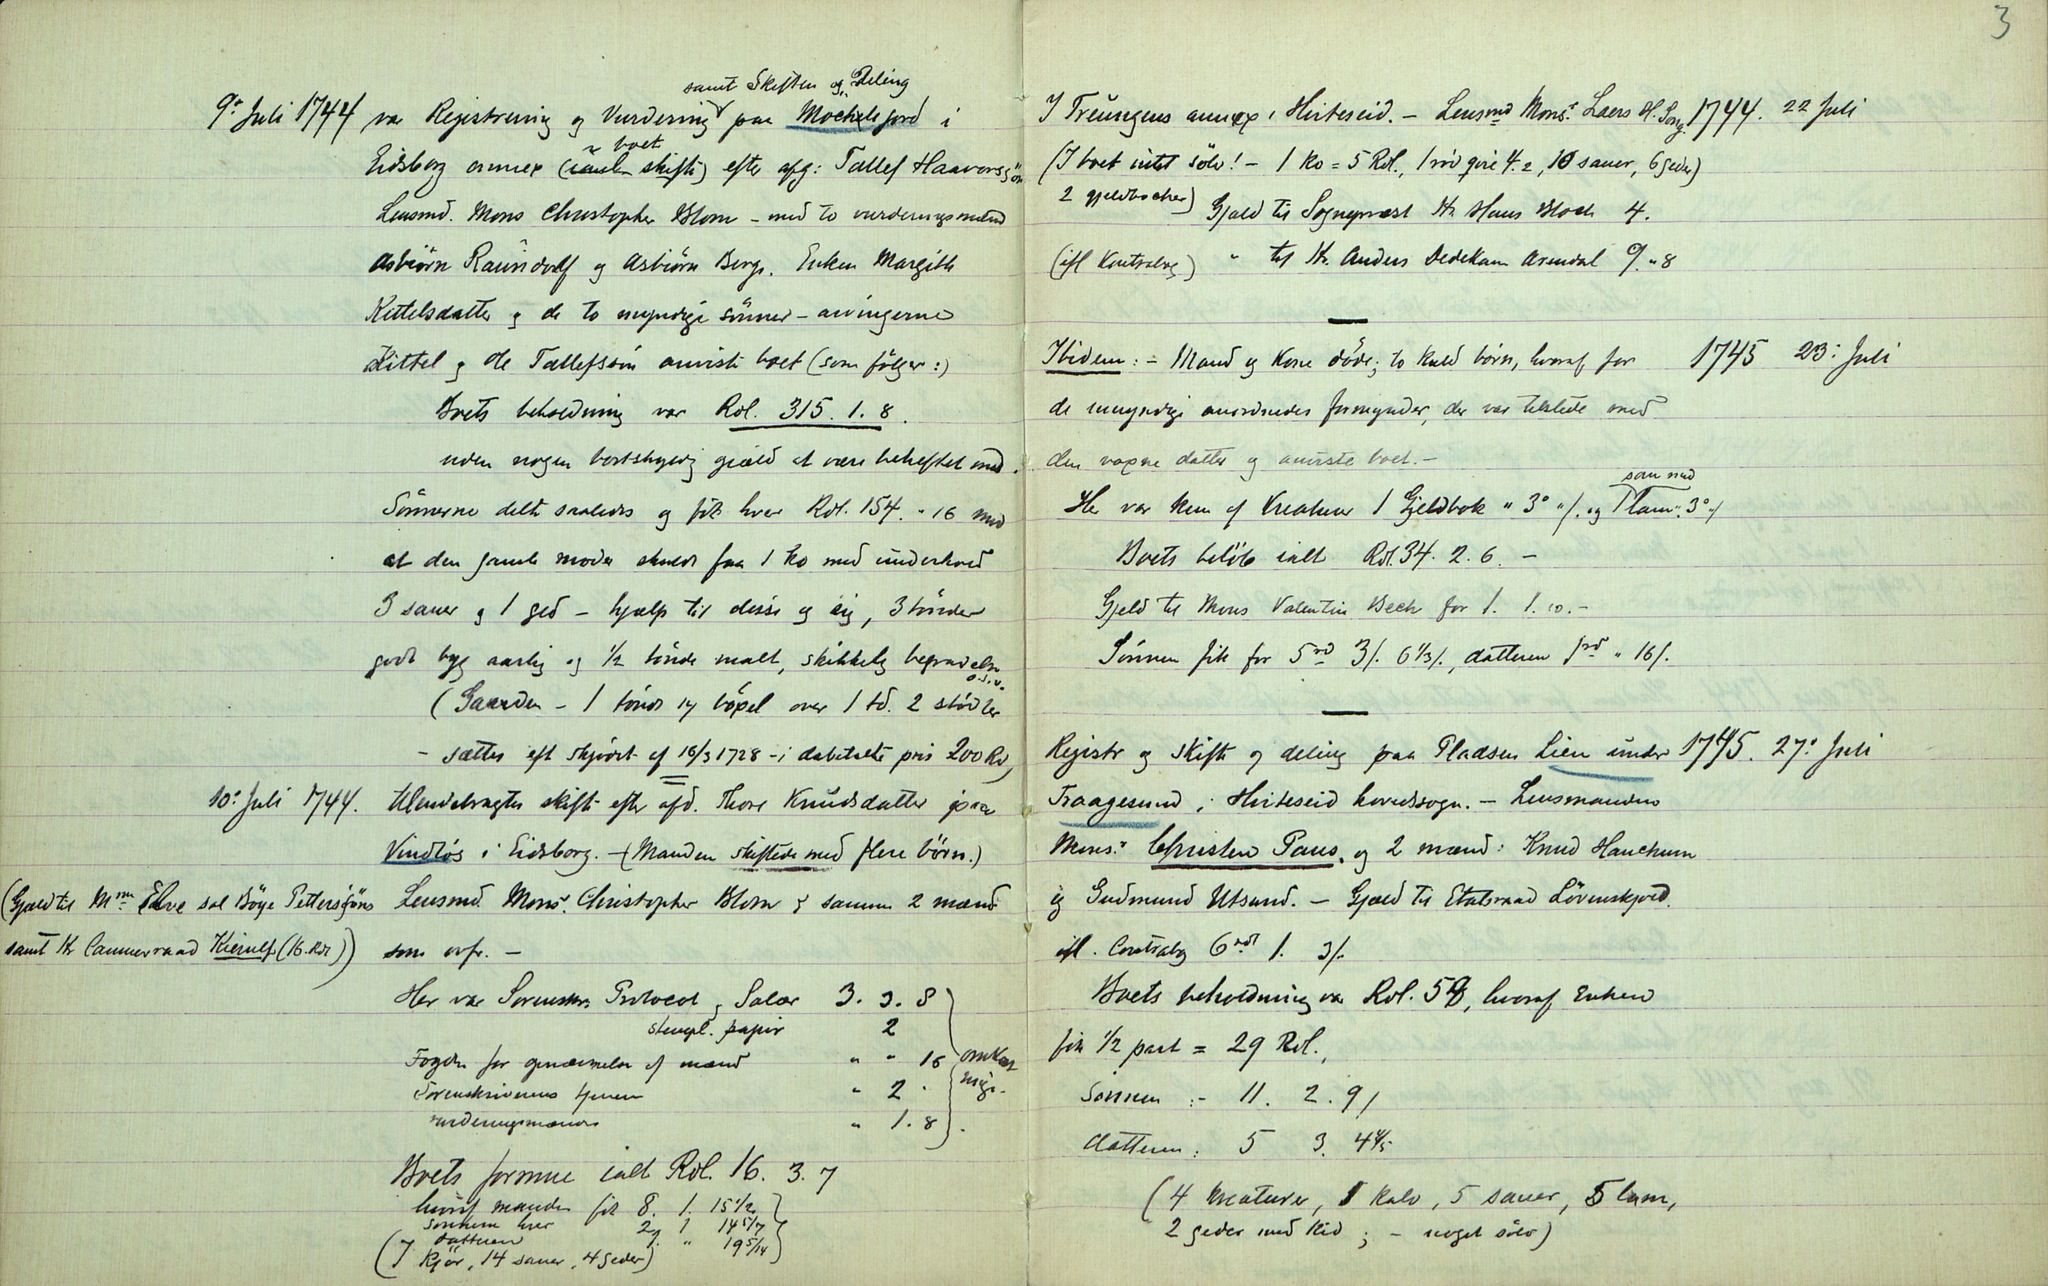 samt Skiften og Deling
9de Juli 1744 var Registrering og Vurdering paa Mochelsjord i
boet
Eidsborg annex (samt skifte) efter afg: Tallef Haavorsøn
Lensmd. Mons Christopher Blom – med to vurderingsmænd
Asbiørn Raundorf og Asbiørn Berge. Enken Margith
Kittelsdatter og de to myndige sønner – arvingerne
Kittel og Ole Tallefsøn anviste boet (som følger:)
Boets beholdning var Rdl. 315. 1. 8.
uden nogen bortskyldig giæld at være beheftet med.
Sønnerne delte saaledes og fik hver Rdl. 154. " 16 mod
at den gamle moder skulde faa 1 ko med underhold
3 sauer og 1 ged – hjælp til disse og sig, 3 tönder
godt byg aarlig og 1/2 tönde malt, skikkelig begravelse
o.s.v.
(Gaarden – 1 tönde og böxel over 1 td. 2 sködler
– sættes eft skjöde af 16/3 1728 – i dabetalte pris 200 Rd)
10de Juli 1744. tilendebragtes skifte efter afd. Thore Knudsdatter paa
Vindlös i Eidsborg. – (Manden skiftede med flere börn.)
(Gjæld til Mme Elve sal Böye Pettersöns Lensmd. Mons. Christopher Blom og samme 2 mænd
samt Hr Cammerraad Kierulf (16. Rdl)) som ovfr. –
Her var Sorenskr. Protocol og Salær 3. 3. 8
stempl. papir 2
Fogden for opnævnelse af mænd " " 16
Sorenskriverens tjener " 2 "
vurderingsmænd " 1. 8
Boets formue ialt Rdl. 16. 3. 7
hvoraf manden fik 8. 1. 15 1/2
sönnern hver 2. 1 14 5/7
datteren 1. " 19 5/14
(7 kjör, 14 sauer, 4 geder)
3
I Treungens annex i Hviteseid. – Lensmd Mons. Laers H. Song. 1744. 22 Juli
(I boet intet sölv! – 1 ko = 5 Rdl., 1 rö qvie 4. 2, 10 sauer, 6 geder)
2 gjeldbocker) Gjæld til Sogneprest Hr. Hans Bloch 4.
(ifl Kontrabog) " til Hr. Anders Dedekam Arendal 9. " 8
Ibidem: – Mand og Kone döde; to kuld börn, hvoraf for 1745 23: Juli
de umyndige anordnedes formynder, der var tilstede med
den voxne datter og anviste boet. –
sau med
Her var kun af Kreaturer 1 Gjeldbok " 3 " /. og 1 lam ". 3 " /
Boets belöb ialt Rdl. 34. 2. 6. –
Gjeld til Mons Valentin Bech for 1. 1. 10. –
Sönnen fik for 5 rd 3/. 6 1/3/., datteren " 16/.
Registr og Skifte og deling paa Pladsen Lien under 1745. 27de Juli
Traagesund i Hviteseid hovedsogn. – Lensmanden
Mons. Christen Paus, og 2 mænd: Knud Hauchum
og Gudmund Utsund. – Gjæld til Etatsraad Lövenskjold.
ifl. Contrabog 6 rdl 1. 3/.
Boets beholdning var Rdl. 58, hvoraf Enken
fik 1/2 part = 29 Rdl.,
Sönnen :– 11. 2. 9/
datteren: 5 3. 4 4/5
(4 kreaturer, 1 kalv, 5 sauer, 5 lam,
2 geder med kid; – noget sölv)